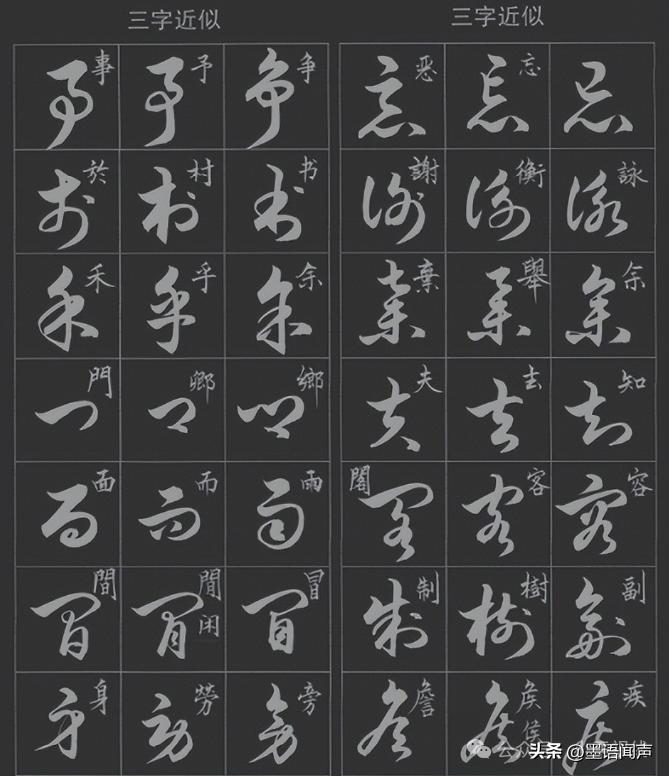 三字近似 三字近似
事 予 争 恶 忘
於 村 书 謝 衡 詠
禾 乎 余 棄 舉 尒
門 卿 鄉 夫 去 知
面 而 雨 閣 客 容
間 閒 闲 冒 制 樹 副
身 勞 旁 詹 侯 疾
头条 @墨语闻声